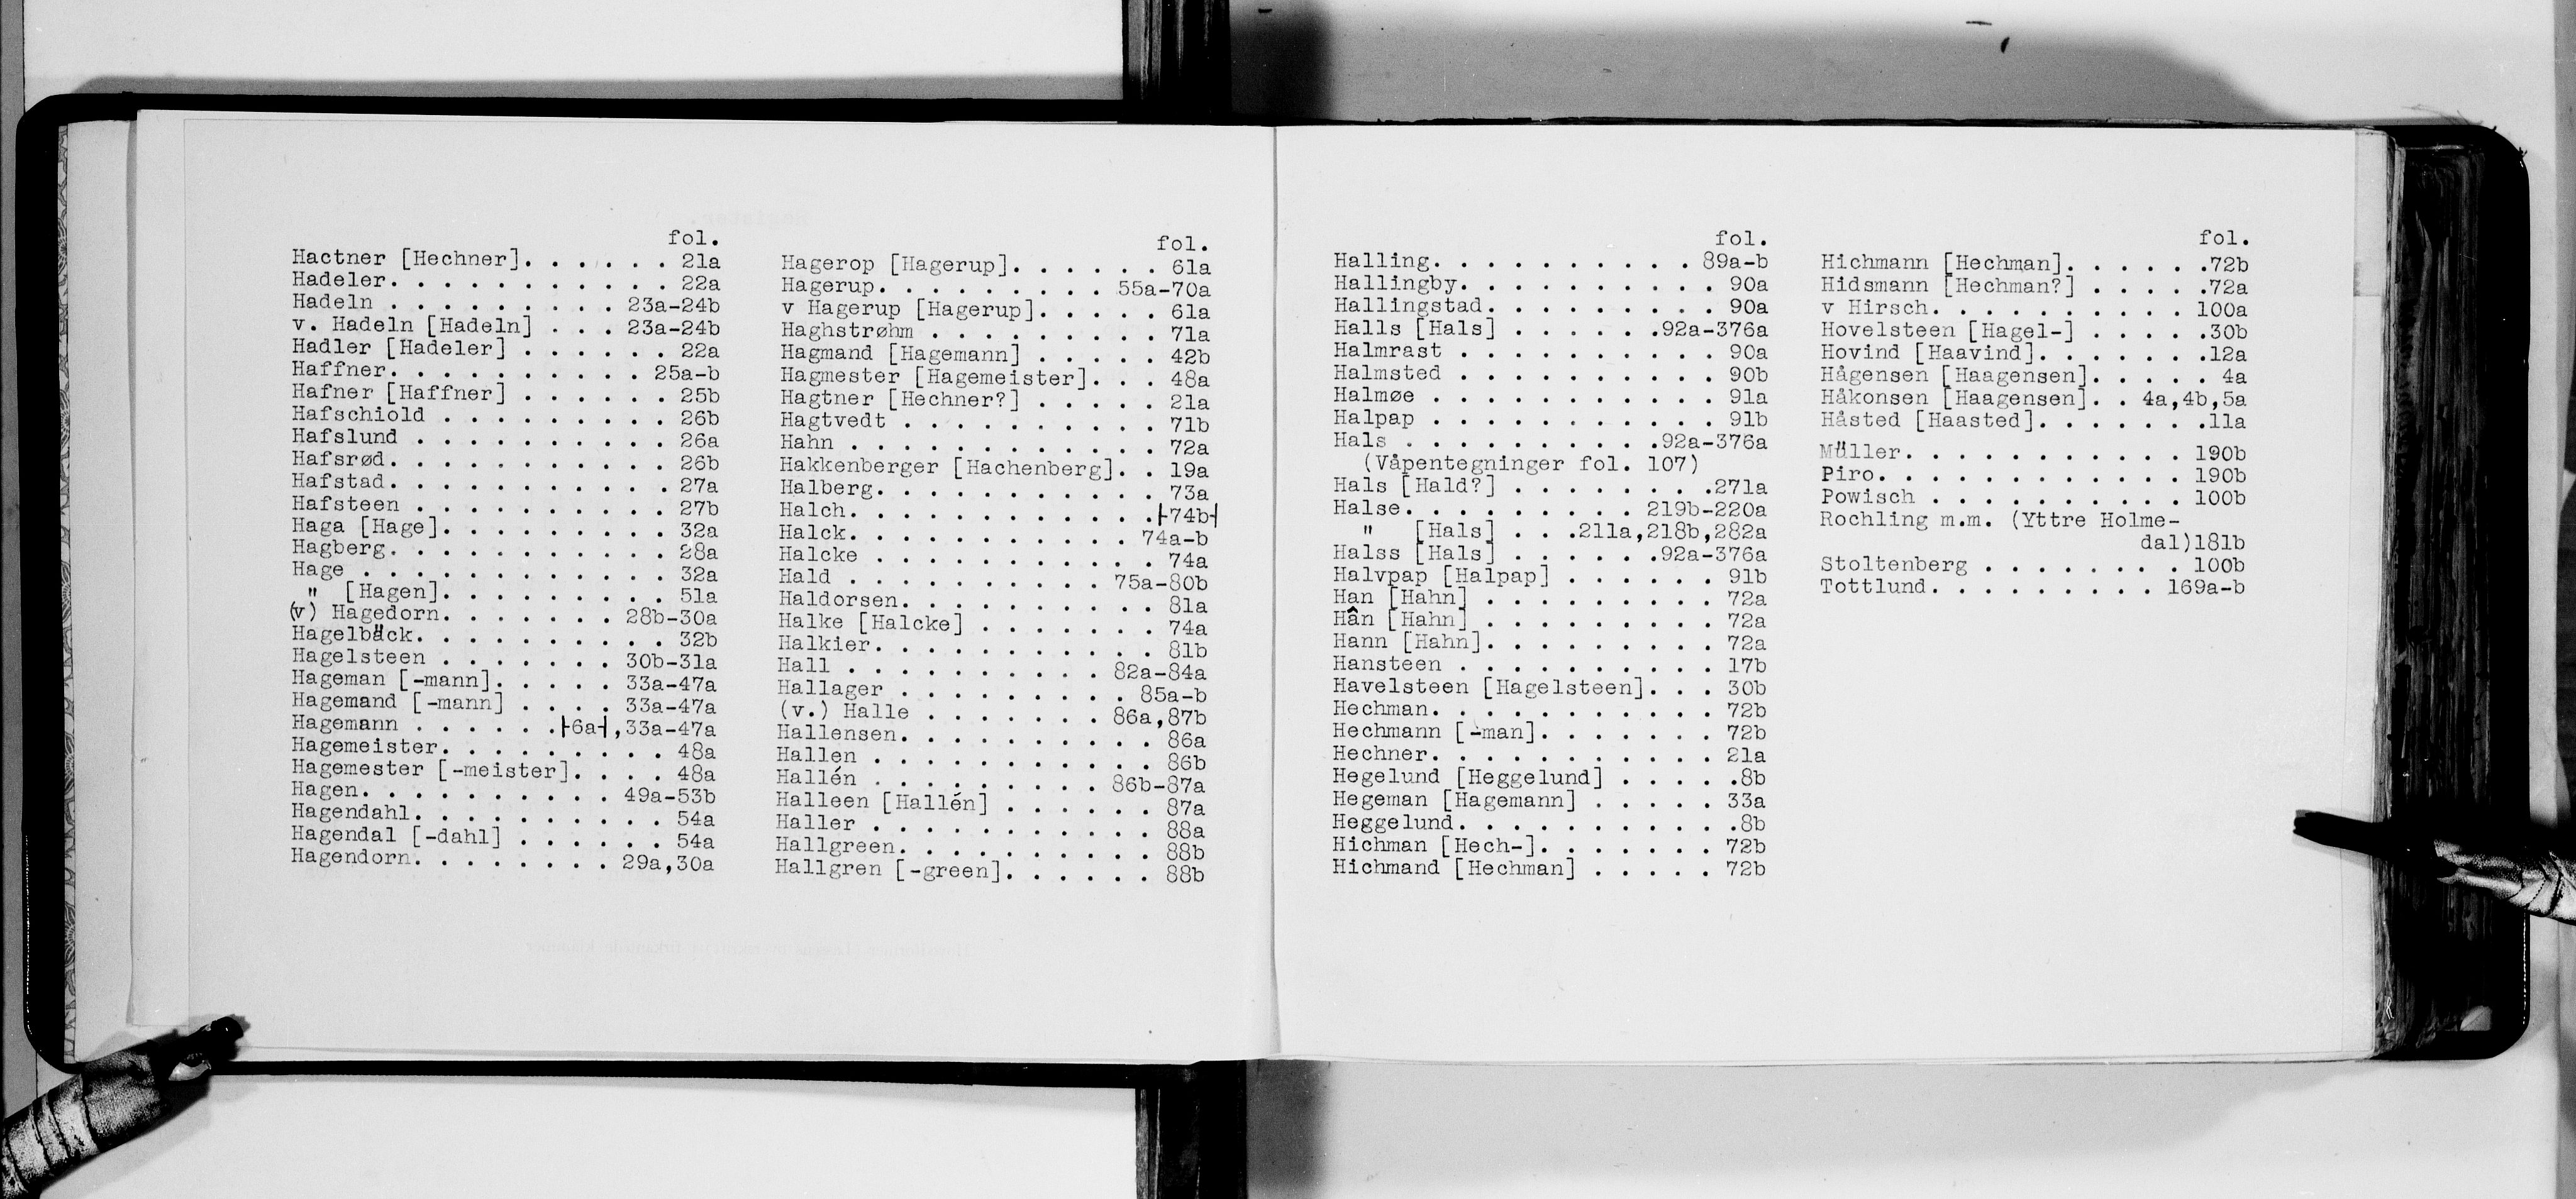 fol.
Hactner [Hechner]. . . . . . 21a
Hadeler. . . . . . . . . . . 22a
Hadeln . . . . . . . . 23a-24b
v. Hadeln [Hadeln] . . . 23a-24b
Hadler [Hadeler] . . . . . . 22a
Haffner. . . . . . . . . . 25a-b
Hafner [Haffner] . . . . . . 25b
Hafschiold . . . . . . . . . 26b
Hafslund . . . . . . . . . . 26a
Hafsrød. . . . . . . . . . . 26b
Hafstad. . . . . . . . . . . 27a
Hafsteen . . . . . . . . . . 27b
Haga [Hage]. . . . . . . . . 32a
Hagberg. . . . . . . . . . . 28a
Hage . . . . . . . . . . . . 32a
" [Hagen]. . . . . . . . . 51a
(v) Hagedorn. . . . . . . 28b-30a
Hagelbäck. . . . . . . . . . 32b
Hagelsteen . . . . . . . 30b-31a
Hageman [-mann]. . . . . 33a-47a
Hagemand [-mann] . . . . 33a-47a
Hagemann . . . . . .⊦6a⊣,33a-47a
Hagemeister. . . . . . . . . 48a
Hagemester [-meister]. . . . 48a
Hagen. . . . . . . . . . 49a-53b
Hagendahl. . . . . . . . . . 54a
Hagendal [-dahl] . . . . . . 54a
Hagendorn. . . . . . . . 29a,30a
fol.
Hagerop [Hagerup]. . . . . . 61a
Hagerup. . . . . . . . . 55a-70a
v Hagerup [Hagerup]. . . . . 61a
Haghstrøhm . . . . . . . . . 71a
Hagmand [Hagemann] . . . . . 42b
Hagmester [Hagemeister]. . . 48a
Hagtner [Hechner?] . . . . . 21a
Hagtvedt . . . . . . . . . . 71b
Hahn . . . . . . . . . . . . 72a
Hakkenberger [Hachenberg]. . 19a
Halberg. . . . . . . . . . . 73a
Halch. . . . . . . . . . . .⊦74b⊣
Halck. . . . . . . . . . . 74a-b
Halcke . . . . . . . . . . . 74a
Hald . . . . . . . . . . 75a-80b
Haldorsen. . . . . . . . . . 81a
Halke [Halcke] . . . . . . . 74a
Halkier. . . . . . . . . . . 81b
Hall . . . . . . . . . . 82a-84a
Hallager . . . . . . . . . 85a-b
(v.) Halle . . . . . . . 86a,87b
Hallensen. . . . . . . . . . 86a
Hallen . . . . . . . . . . . 86b
Hallén . . . . . . . . . 86b-87a
Halleen [Hallén] . . . . . . 87a
Haller . . . . . . . . . . . 88a
Hallgreen. . . . . . . . . . 88b
Hallgren [-green]. . . . . . 88b
fol.
Halling. . . . . . . . . . 89a-b
Hallingby. . . . . . . . . . 90a
Hallingstad. . . . . . . . . 90a
Halls [Hals] . . . . . .92a-376a
Halmrast . . . . . . . . . . 90a
Halmsted . . . . . . . . . . 90b
Halmøe . . . . . . . . . . . 91a
Halpap . . . . . . . . . . . 91b
Hals . . . . . . . . . .92a-376a
(Våpentegninger fol. 107)
Hals [Hald?] . . . . . . . .271a
Halse. . . . . . . . . 219b-220a
" [Hals] . . .211a,218b,282a
Halss [Hals] . . . . . .92a-376a
Halvpap [Halpap] . . . . . . 91b
Han [Hahn] . . . . . . . . . 72a
Hân [Hahn] . . . . . . . . . 72a
Hann [Hahn]. . . . . . . . . 72a
Hansteen . . . . . . . . . . 17b
Havelsteen [Hagelsteen]. . . 30b
Hechman. . . . . . . . . . . 72b
Hechmann [-man]. . . . . . . 72b
Hechner. . . . . . . . . . . 21a
Hegelund [Heggelund] . . . . .8b
Hegeman [Hagemann] . . . . . 33a
Heggelund. . . . . . . . . . .8b
Hichman [Hech-]. . . . . . . 72b
Hichmand [Hechman] . . . . . 72b
fol.
Hichmann [Hechman]. . . . . .72b
Hidsmann [Hechman?] . . . . .72a
v Hirsch. . . . . . . . . . 100a
Hovelsteen [Hagel-] . . . . .30b
Hovind [Haavind]. . . . . . .12a
Hågensen [Haagensen]. . . . . 4a
Håkonsen [Haagensen]. . 4a,4b,5a
Håsted [Haasted]. . . . . . .11a
Müller. . . . . . . . . . . 190b
Piro. . . . . . . . . . . . 190b
Powisch . . . . . . . . . . 100b
Rochling m.m. (Yttre Holme-
dal)181b
Stoltenberg . . . . . . . . 100b
Tottlund. . . . . . . . . 169a-b